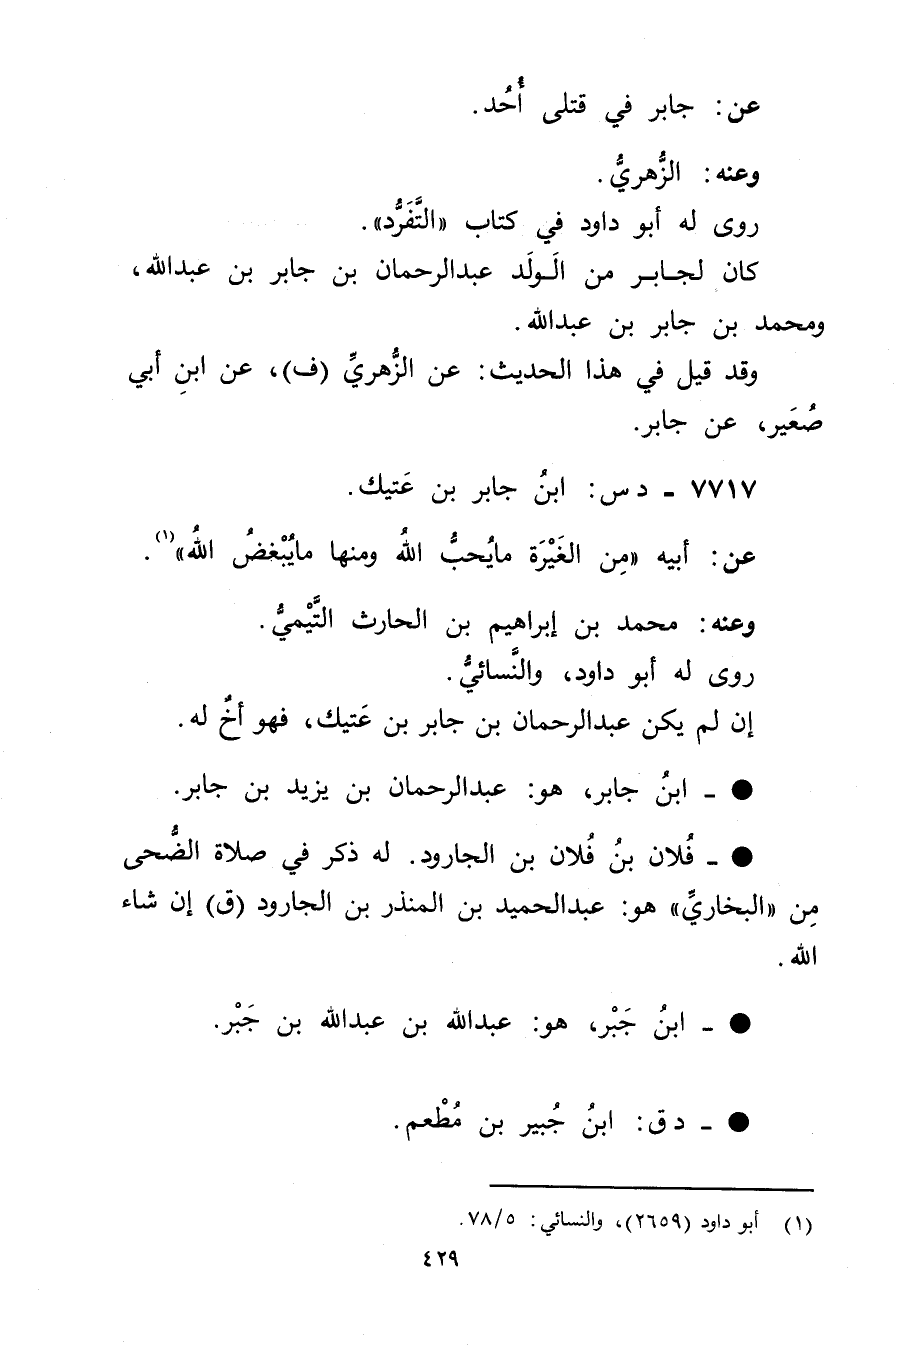 عن: جابر في قتلى أُحُد.
وعنه: الزُّهريُّ.
روى له أبو داود في كتاب «التَّفَرُّد».
كان لجـابـر من الَـولَد عبدالرحمان بن جابر بن عبدالله،
ومحمد بن جابر بن عبدالله.
وقد قيل في هذا الحديث: عن الزُّهريِّ (ف)، عن ابنِ أبي
صُعَير، عن جابر.
٧٧١٧ - د س: ابنُ جابر بن عَتيك.
عن: أبيه «مِن الغَيْرَة مايُحبُّ اللهُ ومنها مايُبْغضُ اللهُ»(١).
وعنه: محمد بن إبراهيم بن الحارث التَّيْميُّ.
روى له أبو داود، والنَّسائيُّ.
إن لم يكن عبدالرحمان بن جابر بن عَتيك، فهو أخٌ له.
● - ابنُ جابر، هو: عبدالرحمان بن يزيد بن جابر.
● - فُلان بنُ فُلان بن الجارود. له ذكر في صلاة الضُّحى
مِن «البخاريِّ» هو: عبدالحميد بن المنذر بن الجارود (ق) إن شاء
الله.
● - ابنُ جَبْر، هو: عبدالله بن عبدالله بن جَبْر.
● - د ق: ابنُ جُبير بن مُطْعم.
(١) أبو داود (٢٦٥٩)، والنسائي: ٧٨/٥.
٤٢٩